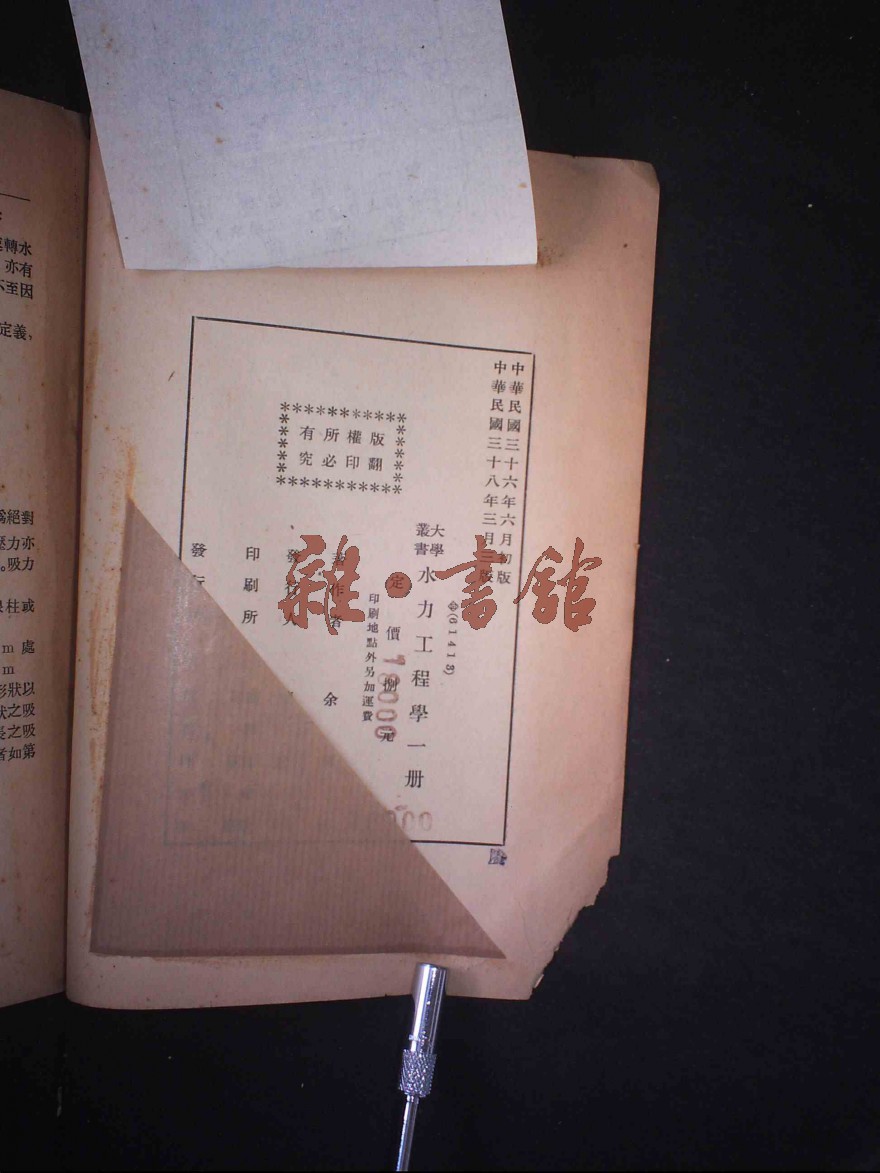 中華民國三十六年六月初版
中華民國三十八年三月三版
(61413)
大學叢書 水力工程學一册
定價捌元
18000
印刷地點外另加運費
版權所有
翻印必究
著作者 余
發行人
印刷所
發行
000
雜·書館
轉水
亦有
不至因
定義,
絕對
壓力亦
。吸力
柱或
m 處
m
形狀以
狀之吸
長之吸
者如第